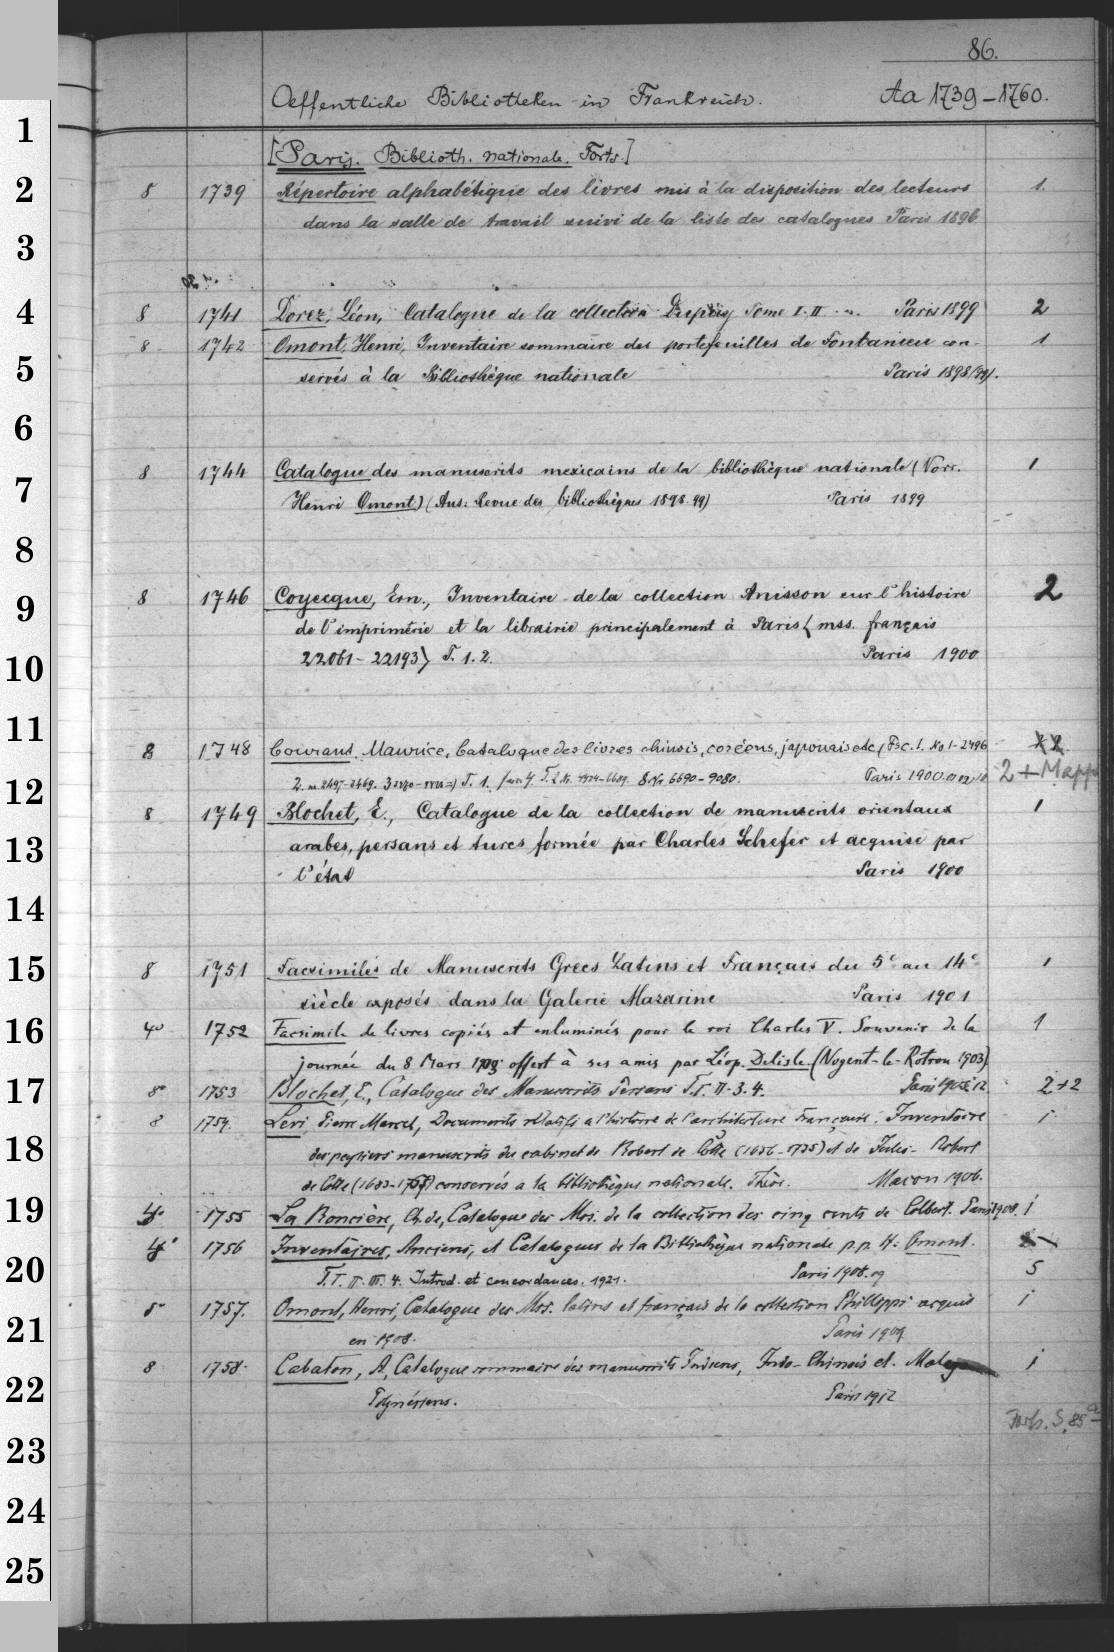 86.
Oeffentliche Bibliotheken in Frankreich. Aa 1739-1760.
[Paris. Biblioth. nationale. Forts.]
8 1739 Répertoire alphabétique des livres mis à la disposition des lecteurs 1.
dans la salle de travail suivi de la liste des catalogues Paris 1896
8 1741 Dorez, Léon, Catalogue de la collection Dupuy Tome I. II Paris 1899 2
8 1742 Omont, Henri, Inventaire sommaire des portefeuilles de Fontanieu con- 1
servés à la Bibliothèque nationale Paris 1898/99.
8 1744 Catalogue des manuscrits mexicains de la bibliothèque nationale (Vorr. 1
Henri Omont) (Aus: Revue des bibliothèques 1898.99) Paris 1899
8 1746 Coyecque, Ern., Inventaire de la collection Anisson sur l'histoire 2
de l'imprimérie et la librairie principalement à Paris (mss. français
22061-22193) T. 1.2. Paris 1900
8 1748 Courant, Maurice, Catalogue des livres chinois, coréens, japonais etc (Fsc. 1. No 1-2496 2
T. 1. 8 No 6690-9080. Paris 1900 2+Mappe
8 1749 Blochet, E., Catalogue de la collection de manuscrits orientaux 1
arabes, persans et turcs formée par Charles Schefer et acquise par
l'état Paris 1900
8 1751 Facsimilés de Manuscrits Grecs Latins et Français du 5e au 14e 1
siècle exposés dans la Galerie Mazarine Paris 1901
4° 1752 Facsimile de livres copiés et enluminés pour le roi Charles V. Souvenir de la 1
journée du 8 Mars 1903 offert à ses amis par Léop. Delisle. (Nogent-le-Rotrou 1903)
8° 1753 Blochet, E., Catalogue des Manuscrits Persans T.I. II. 3. 4. Paris 12 2+2
8 1754. Levi, Pierre Marcel, Documents rélatifs a l'histoire de l'architecture Française. Inventaire 1
des papiers manuscrits du cabinet de Robert de Cotte (1656-1735) et de Jules-Robert
de Cotte (1683-1767) conservés a la bibliothèque nationale. Thèse. Macon 1906.
4° 1755 La Roncière, Ch. de, Catalogue des Mss. de la collection des cinq cents de Colbert. Paris 1908. 1
4° 1756 Inventaires, Anciens, et Catalogues de la Bibliothèque nationale p.p. H. Omont.
T.I. II. III. 4. Introd. et concordances. 1921. Paris 1908.09 5
8° 1757. Omont, Henri, Catalogue des Mss. latins et français de la collection Phillipps acquis 1
en 1908. Paris 1909
8 1758. Cabaton, A., Catalogue sommaire des manuscrits Indiens, Indo-Chinois et Malayo 1
Polynésiens. Paris 1912
Forts. S. 85a
1
2
3
4
5
6
7
8
9
10
11
12
13
14
15
16
17
18
19
20
21
22
23
24
25